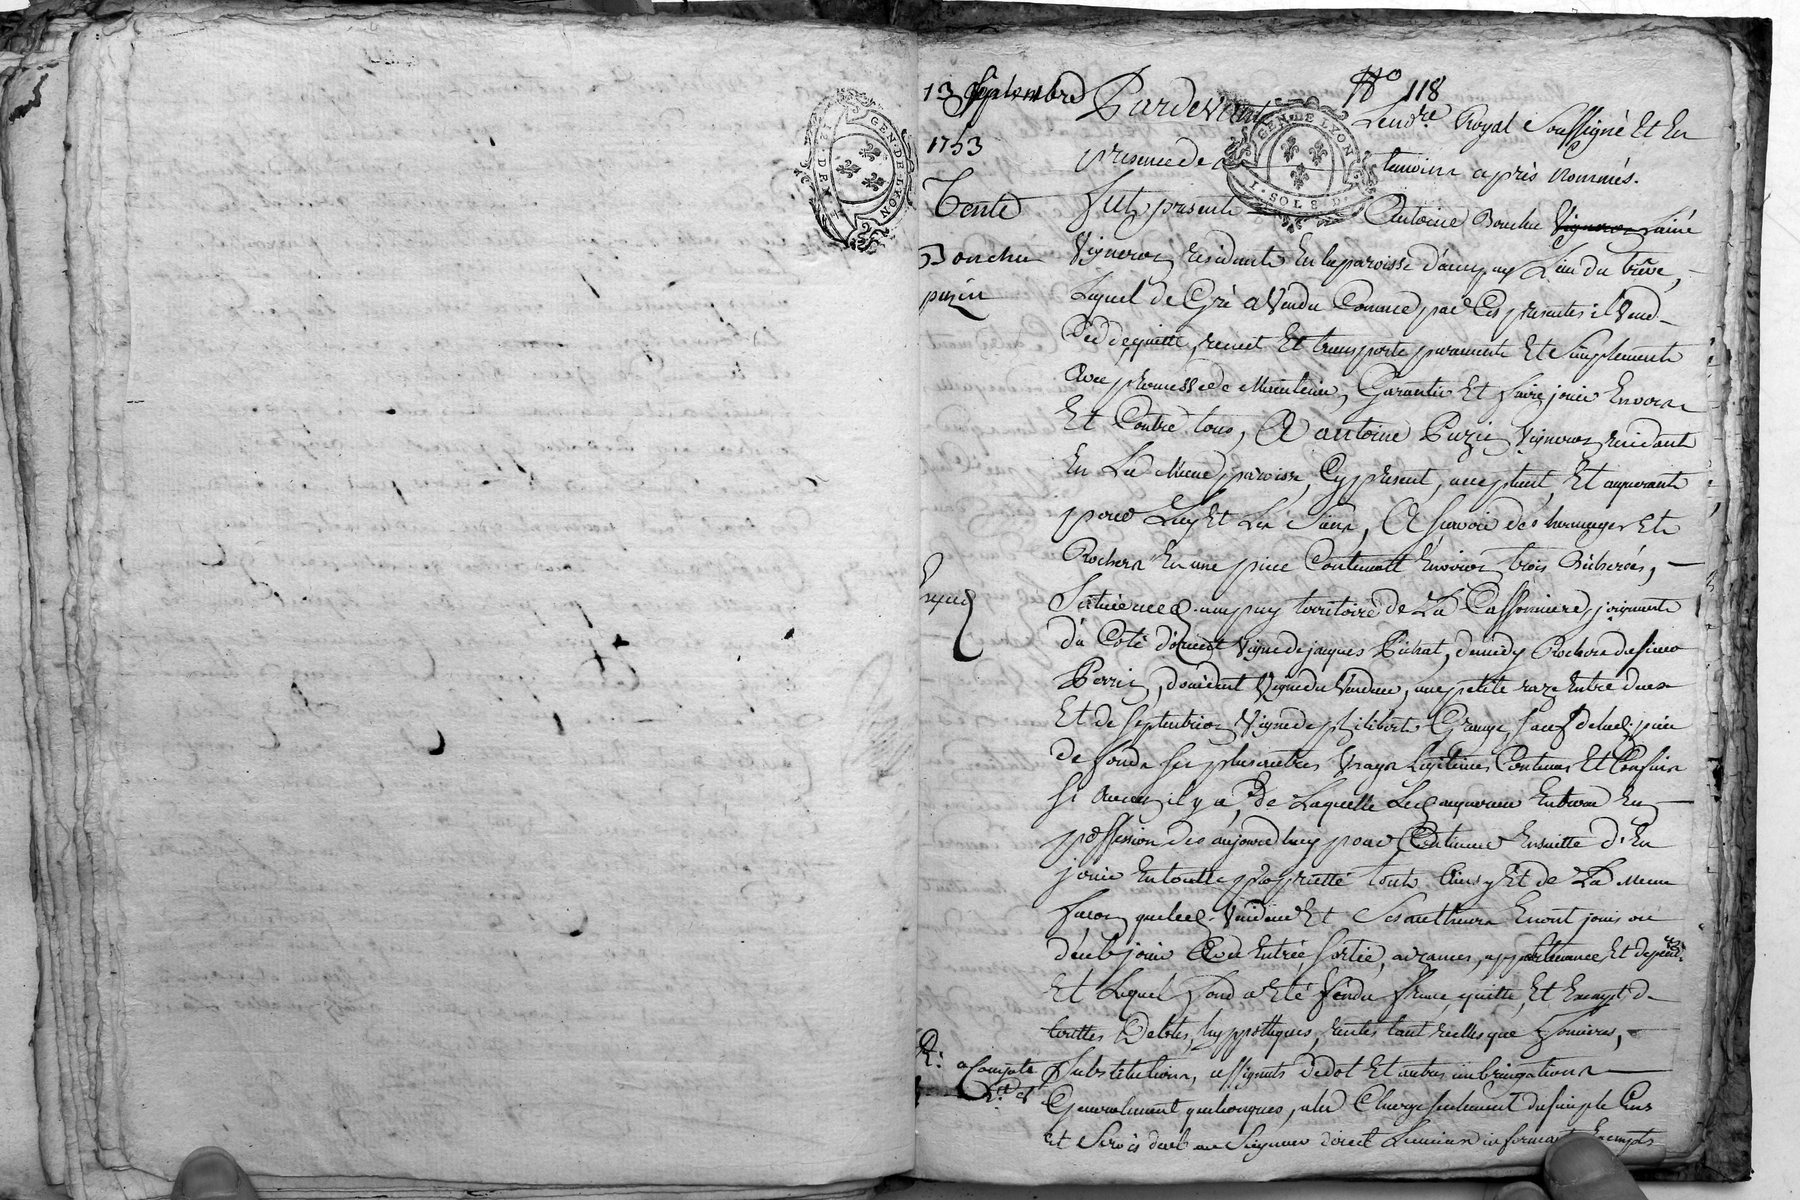 GEN. DE LYON
13 Septembre
1753
Vente
Bonchu
puzin
Nº 118
Pardevant Le no.re Royal Soussigné Et En
presence de temoins apres nommés.
GEN. DE LYON
1. SOLS D.
fut present Antoine Bouchu Vigneron Lainé
Vigneron residant En la paroisse d'ampuy Lieu du trêve,
Lequel de Gré a Vendu Comme par Ces presentes il Vend
Cedde, quitte, remet Et transporte purement Et Simplement
avec promesse de Maintenir, Garantir Et faire jouir Envers
Et Contre tous, A antoine Puzin Vigneron residant
En La Meme paroisse, Cy present, acceptant, Et acquerant
pour Luy Et Les Siens, A Savoir des hermages Et
Rochers En une piece Contenant Environ trois Bicherées,
Située aud. ampuy territoire de La Cassonniere, joignante
du Coté d'orient Vigne de jacques Pichat, de midy Rochers de sieur
Perrin, d'occident Vigne du Vendeur, une petite raze Entre deux
Et de Septentrion Vigne de philibert Grange, sauf de lad. piece
de fonds ses plus autres Vrays Legitimes Contenus Et Confins
Si aucuns il y a, de Laquelle Led. acquereur Entrera En
possession des aujourdhuy pour Continuer Ensuitte d'En
jouir En toutte proprietté tout Ainsy Et de La Meme
façon que led. Vendeur Et Ses autheurs En ont jouis ou
deub jouir Avec Entrée, Sortie, aizances, appartenances Et depend.
Et Lequel fond a Eté Vendu franc, quitte, Et Exempt de
touttes Debtes, hyppotheques, rentes tant reelles que foncieres,
Substitutions, assignats de dot Et autres imbrigations
Generalement quelconques, a la Charge seulement du simple Cens
et Servis deub au Seigneur direct
R.
a Compte